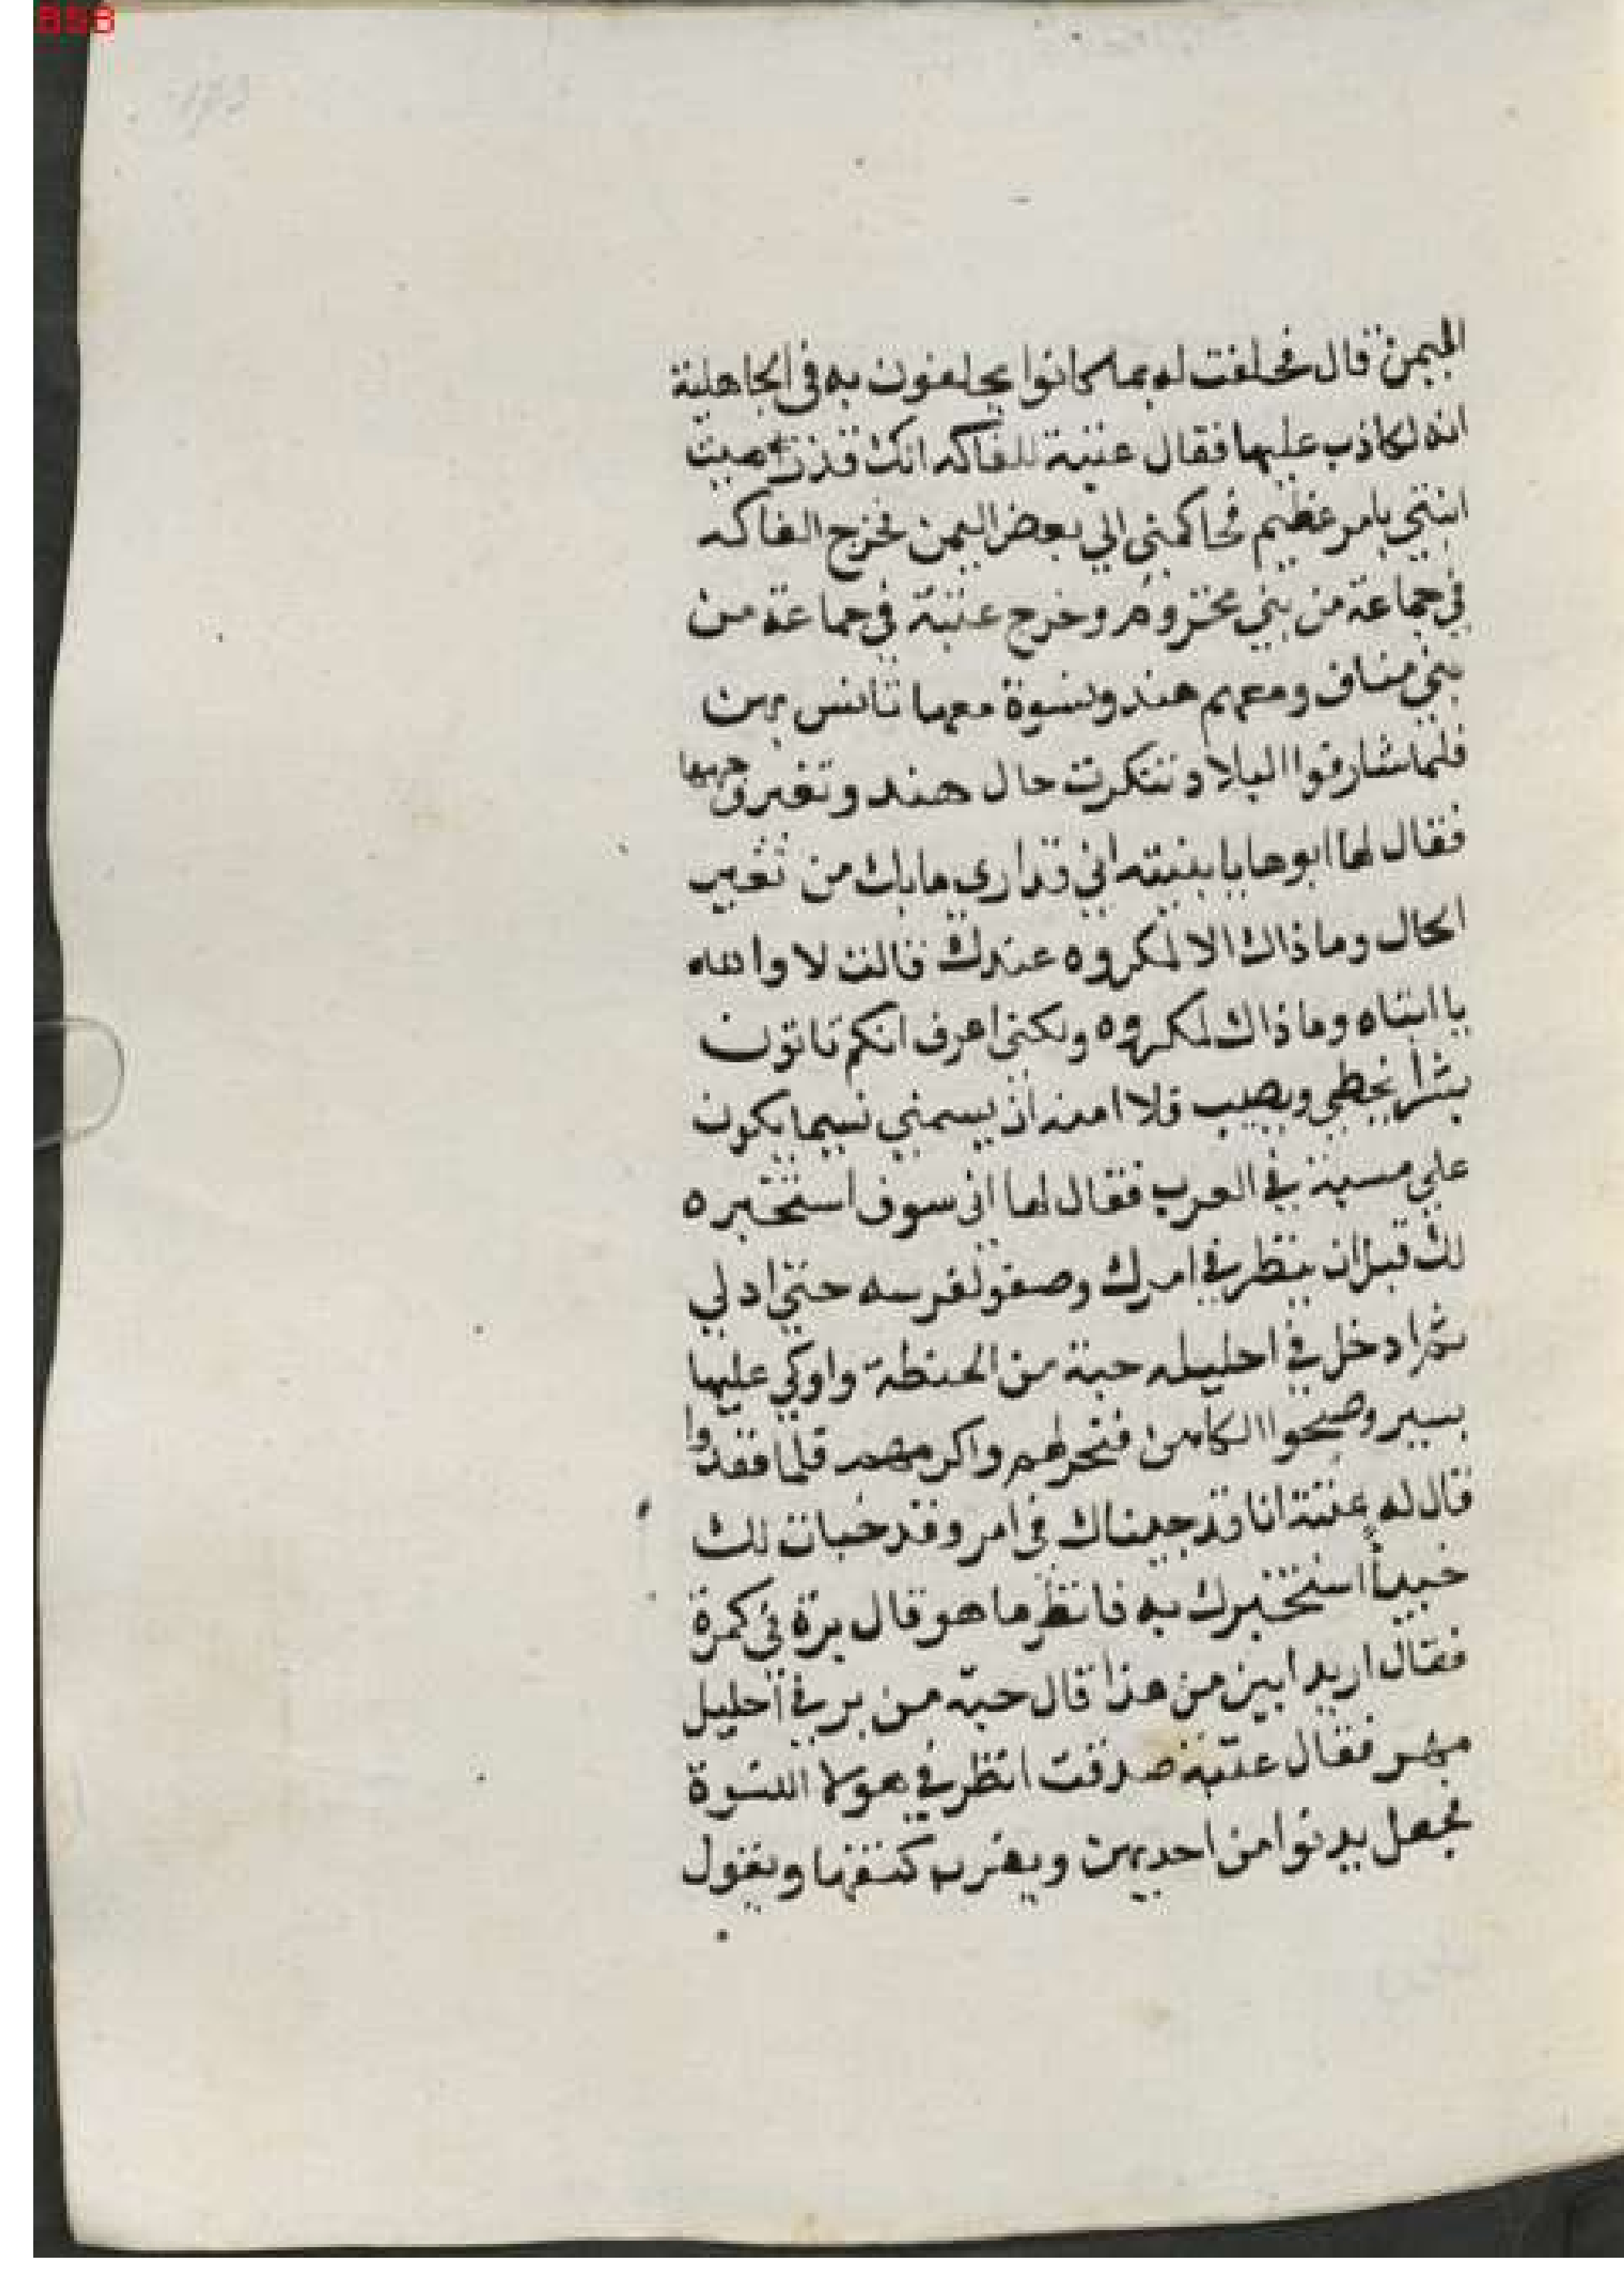 BSB
اليمن قال فحلفت له بما كانوا يحلفون به في الجاهلية
انه لكاذب عليها فقال عتبة للفاكه انك قد رميت
ابنتي بامر عظيم فحاكمني الي بعض اليمن فخرج الفاكه
في جماعة من بني مخزوم وخرج عتبة في جماعة من
بني مناف ومعهم هند ونسوة معها تانس بهن
فلما شارفوا البلاد تنكرت حال هند وتغير وجهها
فقال لها ابوها يا بنيته اني قد اري ما بك من تغير
الحال وما ذاك الا لمكروه عندك قالت لا والله
يا ابتاه وما ذاك لمكروه ولكني اعرف انكم تاتون
بشراً يخطي ويصيب فلا امنه ان يسمني بسيما يكون
علي مسبة في العرب فقال لها اني سوف استختبره
لك قبل ان ينظر في امرك وصفو لفرسه حتي ادلي
ثم ادخل في احليله حبة من الحنطة واوكي عليها
بسير وصبحوا الكاهن فنحر لهم واكرمهم فلما قعدوا
قال له عتبة انا قد جيناك في امر وقد خبات لك
خبياً استختبرك به فانظر ما هو قال برة في كمرة
فقال اريد ابين من هذا قال حبة من بر في احليل
مهر فقال عتبة صدقت انظر في هولا النسوة
فجعل يدنوا من احديهن ويضرب كتفها ويقول